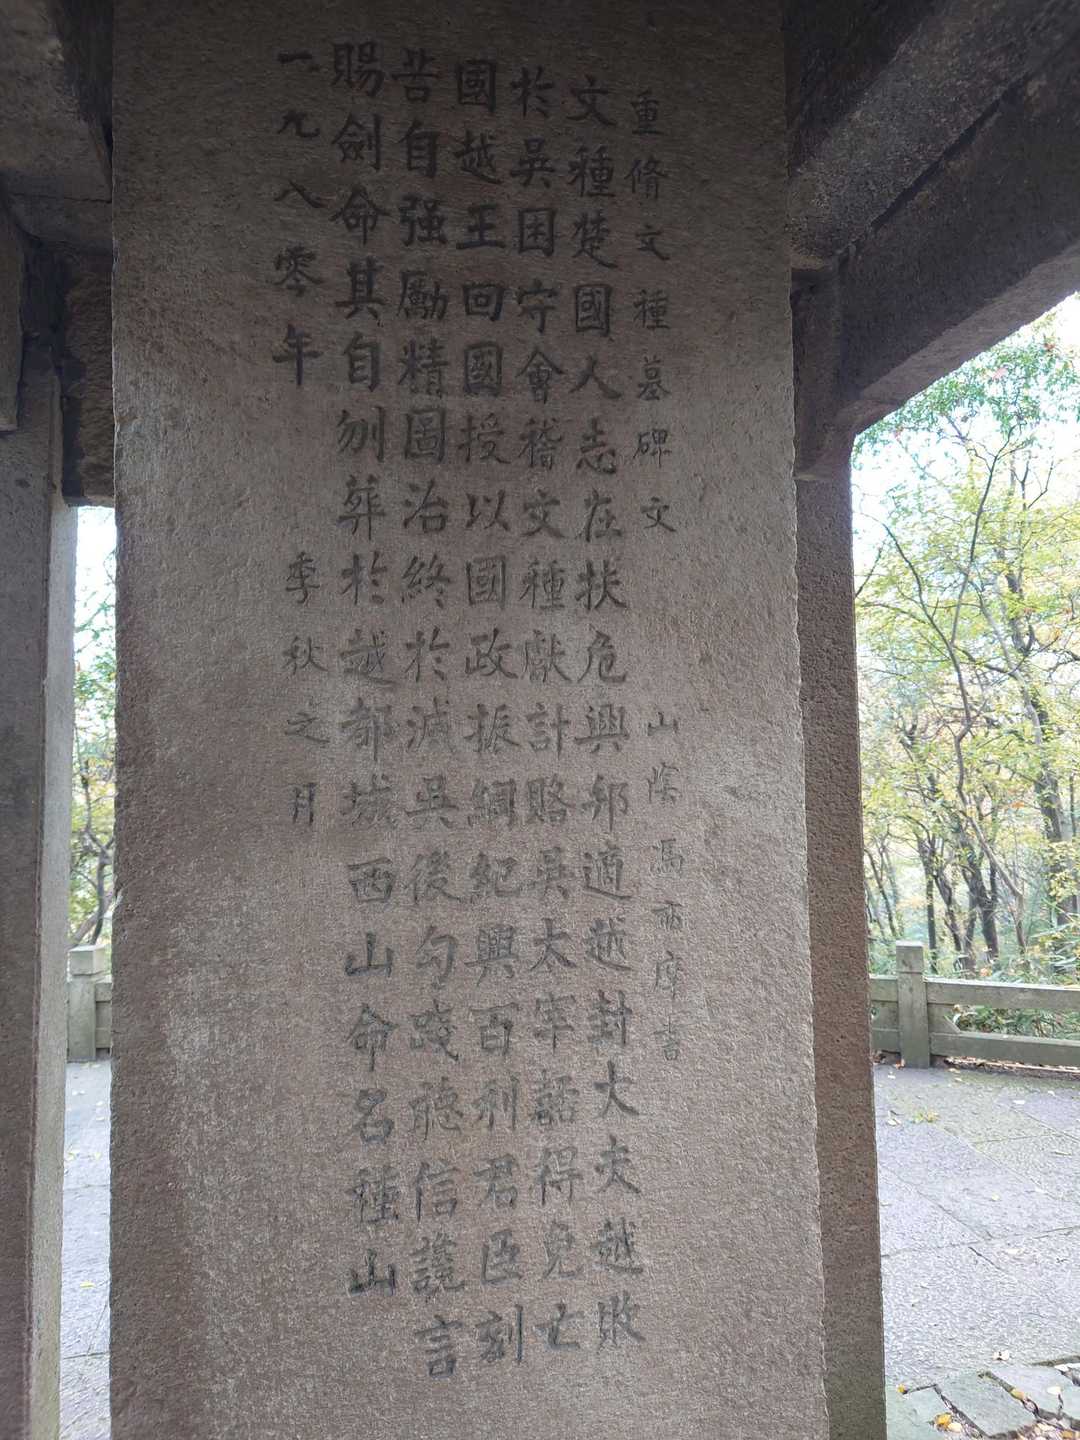 重脩文種墓碑文 山陰馮庠書
文種楚國人志在扶危興邦適越封大夫越敗
於吳困守會稽文種獻計賂吳太宰嚭得免亡
國越王回國授以國政振綱紀興百利君臣刻
苦自强勵精圖治終於滅吳後勾踐聽信讒言
賜劍命其自刎葬於越都城西山命名種山
一九八零年 季秋之月